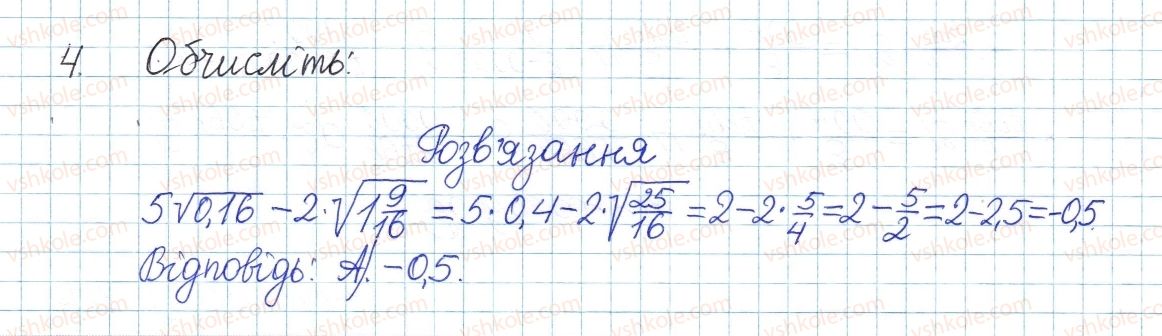 4. Обчисліть:
Розв'язання
5√0,16 − 2·√1 9/16 = 5·0,4 − 2·√25/16 = 2 − 2·5/4 = 2 − 5/2 = 2 − 2,5 = −0,5.
Відповідь: А). −0,5.